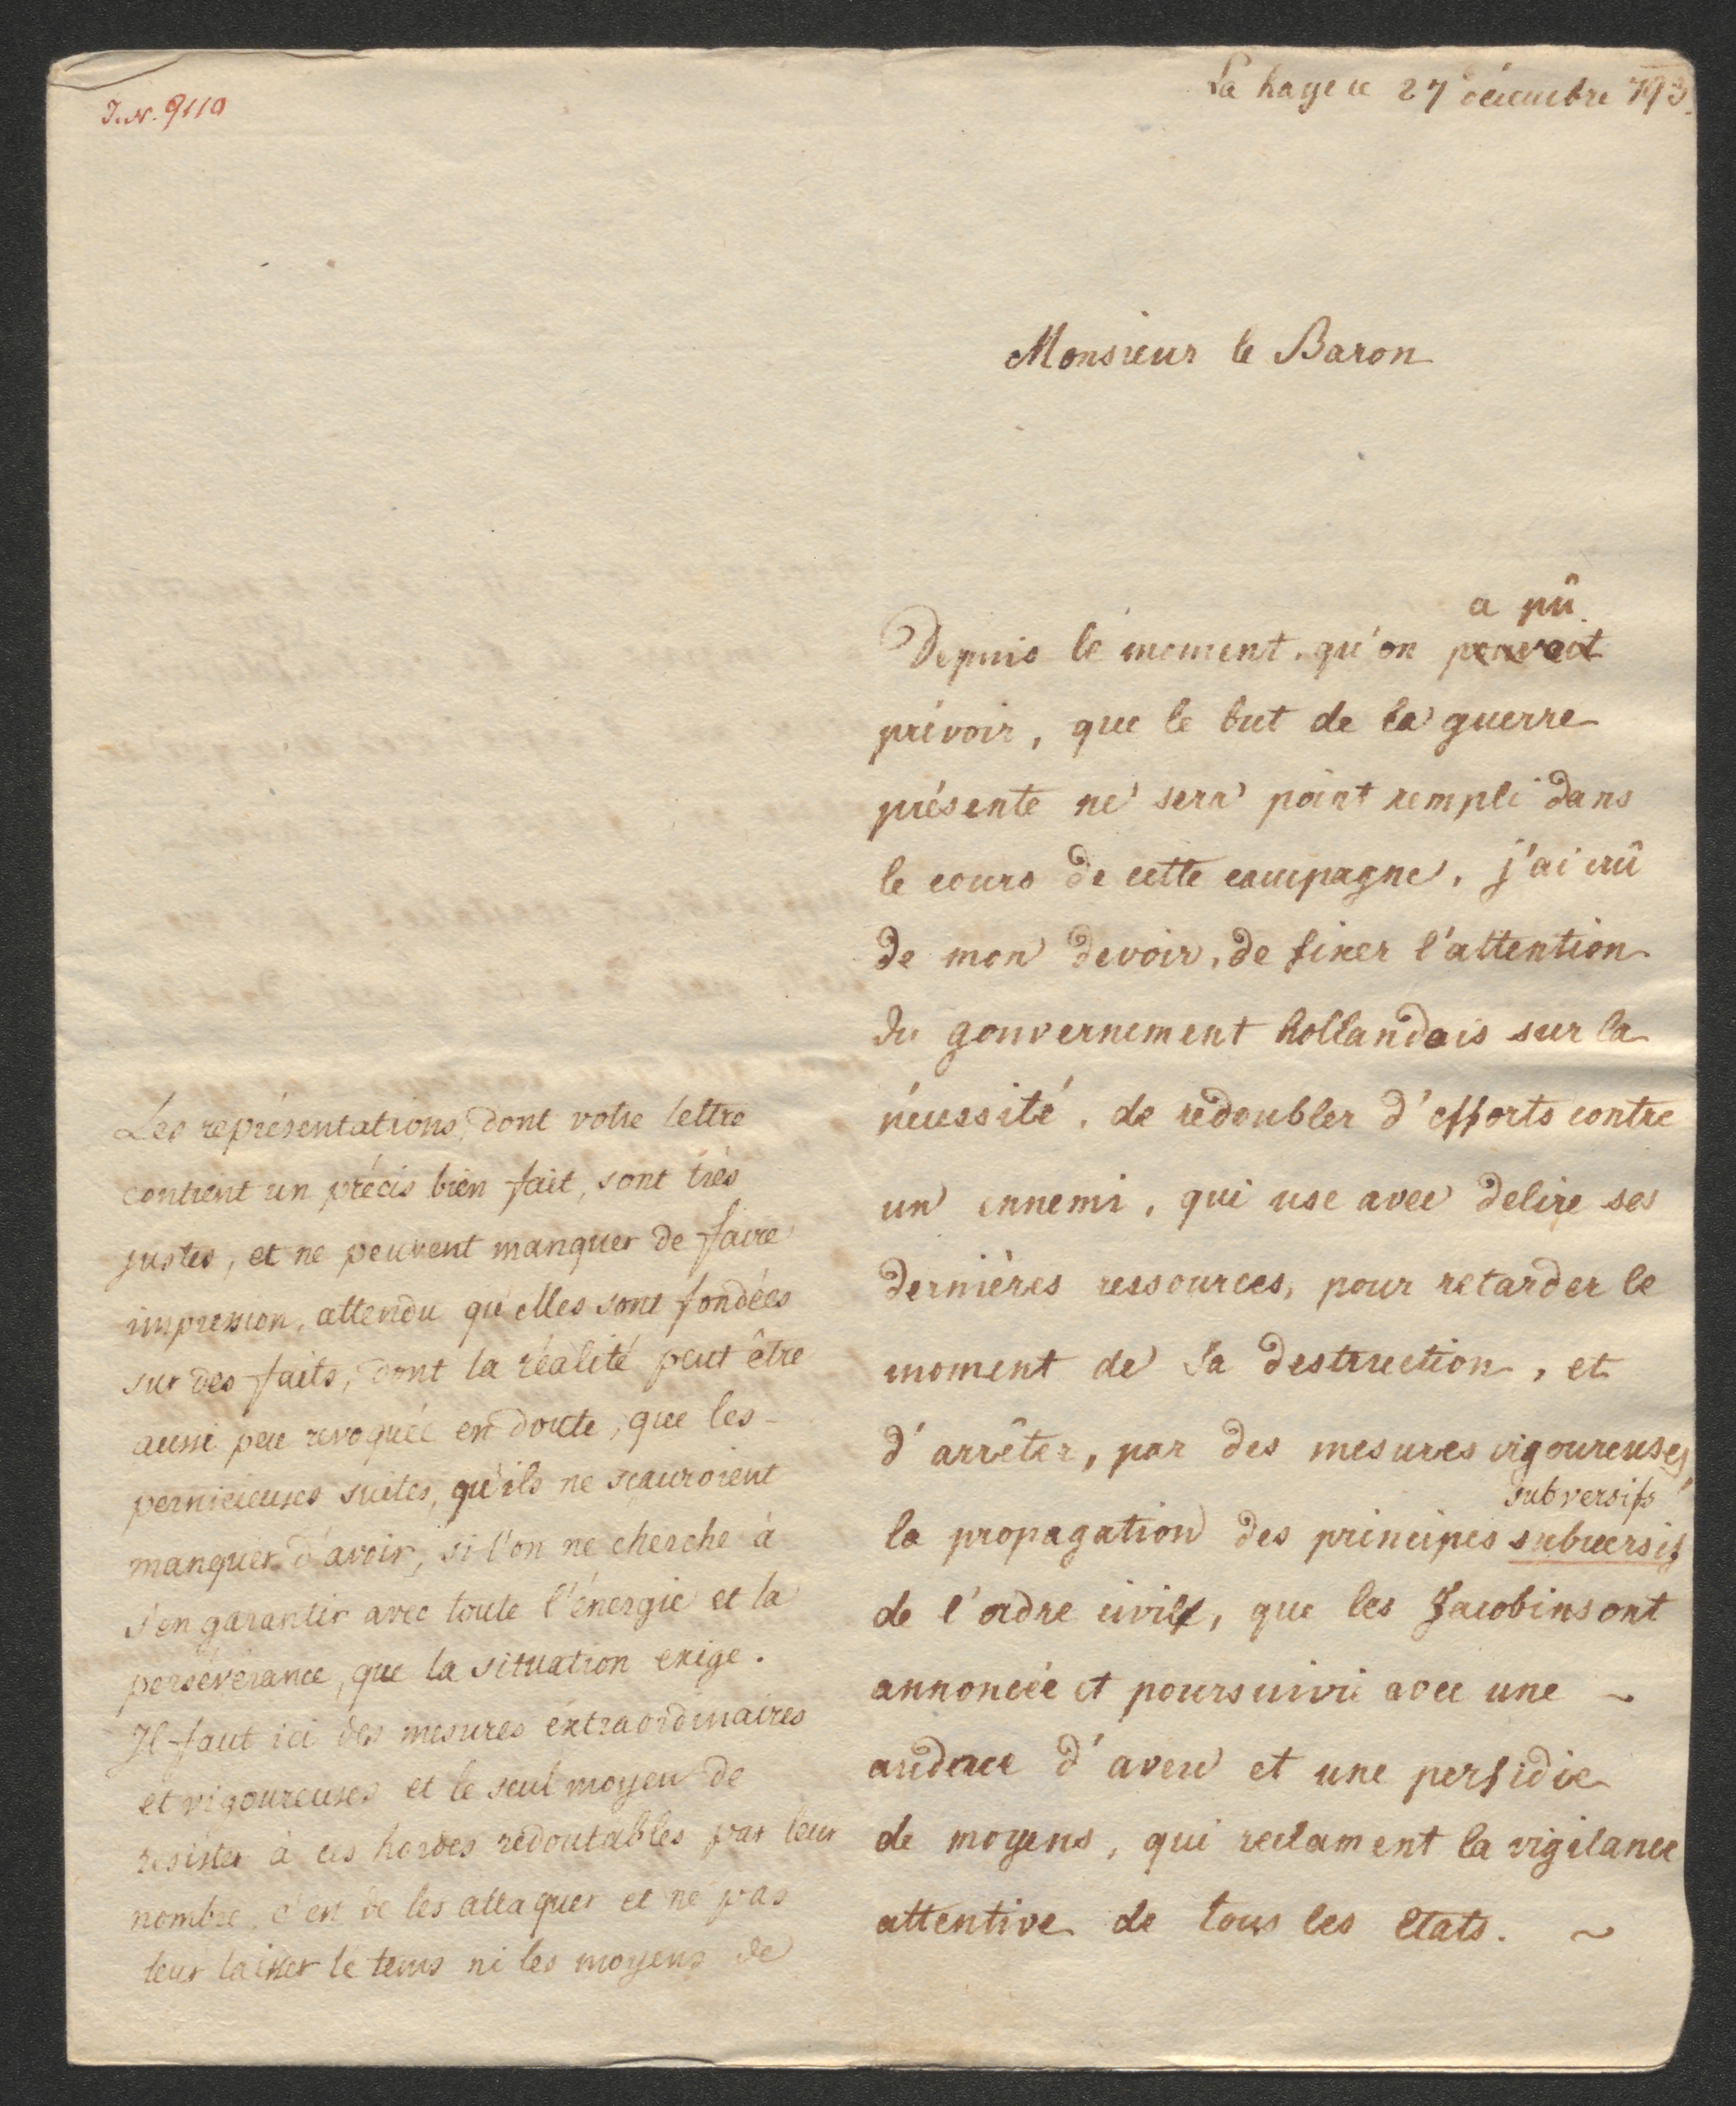 J.N. 9119
La haye ce 27 décembre 793.
Monsieur le Baron
a pû
Depuis le moment, qu'on pouvoit
prévoir, que le but de la guerre
présente ne sera point rempli dans
le cours de cette campagne, j'ai crû
de mon devoir, de fixer l'attention
du gouvernement hollandais sur la
nécessité, de redoubler d'efforts contre
un ennemi, qui use avec delire ses
dernières ressources, pour retarder le
moment de sa destruction, et
d'arrêter, par des mesures vigoureuses,
subversifs
la propagation des principes subversifs
de l'ordre civil, que les Jacobins ont
annoncée et poursuivie avec une ~
audace d'aveu et une perfidie
de moyens, qui reclament la vigilance
attentive de tous les etats. ~
Les représentations, dont votre lettre
contient un précis bien fait, sont très
justes, et ne peuvent manquer de faire
impression, attendu qu'elles sont fondées
sur des faits, dont la réalité peut être
aussi peu revoquée en doute, que les
pernicieuses suites, qu'ils ne sçauroient
manquer d'avoir, si l'on ne cherche à
s'en garantir avec toute l'énergie et la
persévérance, que la situation exige.
Il faut ici des mesures extraordinaires
et vigoureuses et le seul moyen de
resister à ces hordes redoutables par leur
nombre, c'est de les attaquer et ne pas
leur laisser le tems ni les moyens de